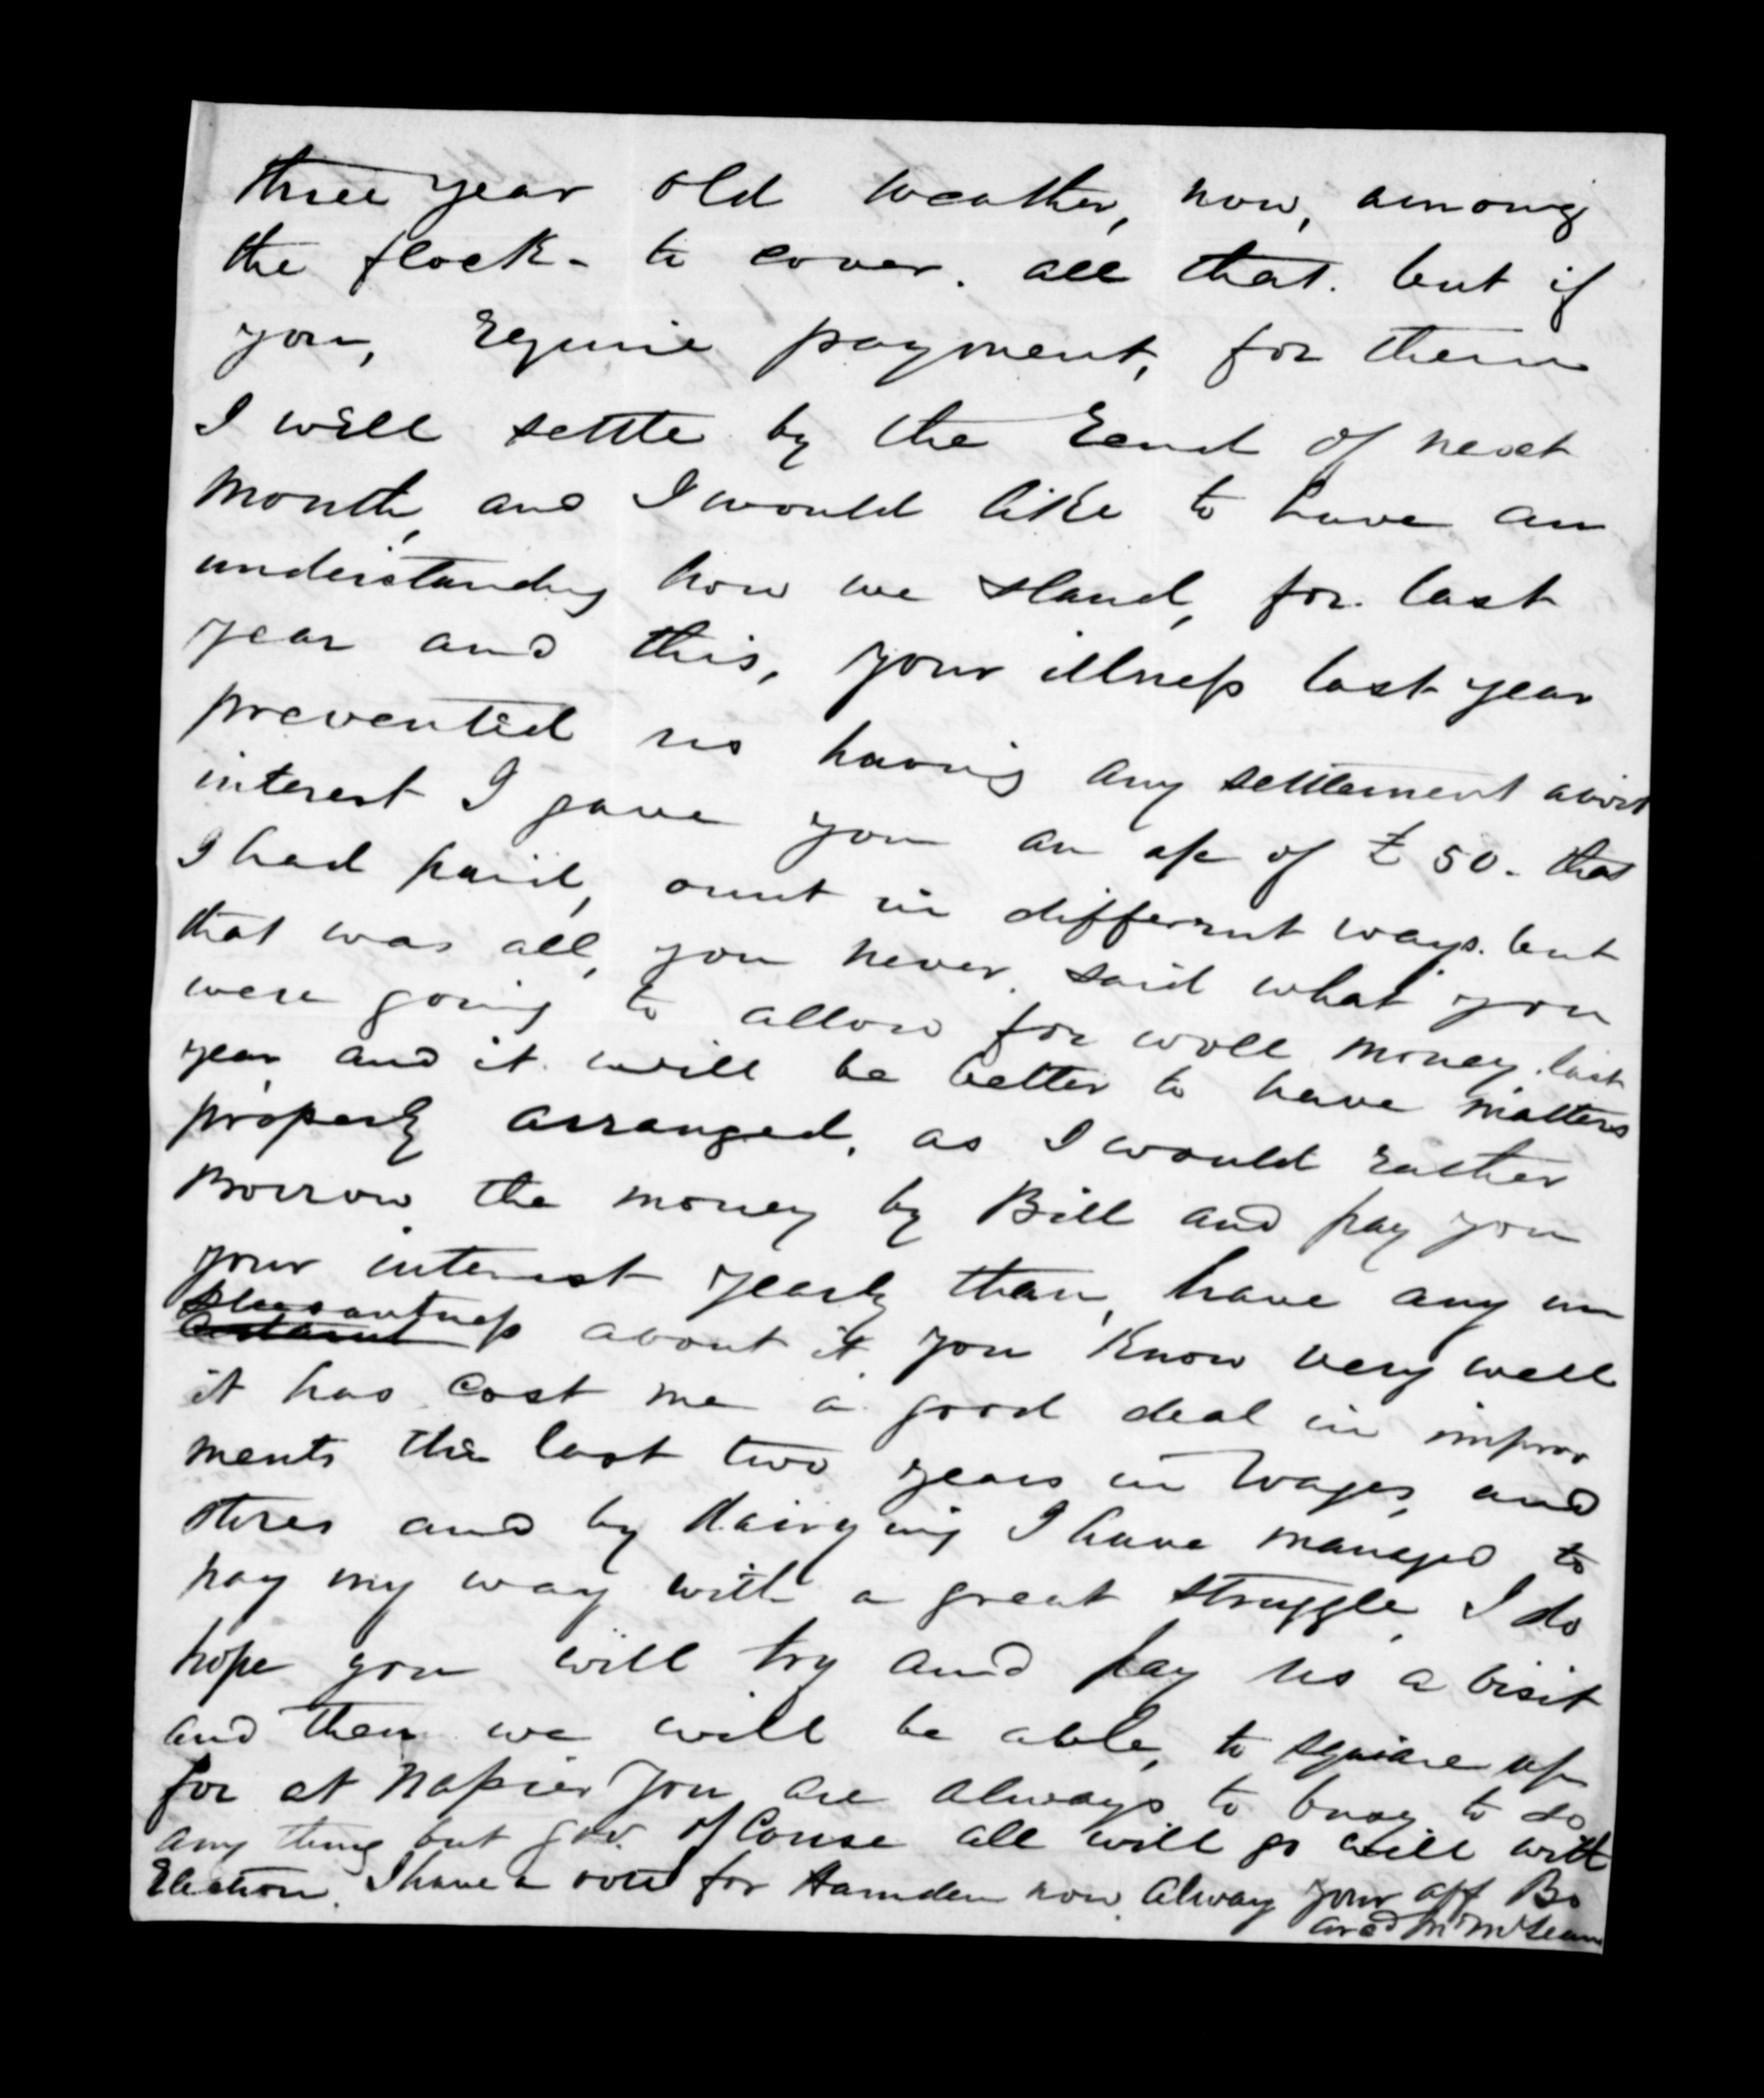 three year old weather, now, among
the flock - to cover. all that. but if
you, Requie payment, for them
I will settle by the Eend of next
month, and I would like to have an
understanding how we stand, for. last
year and this, your illness last year
prevented us having any settlement about
interest I gave you an a/c of £50 - that
I had paid, ount in different ways. but
that was all, you never. said what you
were going to allow for wool money. last
year and it will be better to have matters
properly arranged, as I would Rather
Borrow the money by Bill and pay you
your interest yearly than, have any un
pleasantness about it you Know very well
it has cost me a good deal in improv
ments the last two years in Wages, and
stores and by dairying I have managed to
pay my way with a great struggle, I do
hope you will try and pay us a visit
and then we will be able, to square up
for at Napier you are always to busy to do
any thing but gov. of Course all will go well with
Election. I have a vote for Hamden now. Alway your aff Bro
Arcd Mr McLean